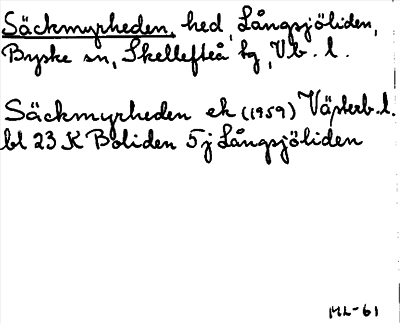 Säckmyrheden, hed, Långsjöliden,
Byske sn, Skellefteå tg, Vb. l.
Säckmyrheden ek (1959) Västerb. l.
bl 23 K Boliden 5 j Långsjöliden
ML-61